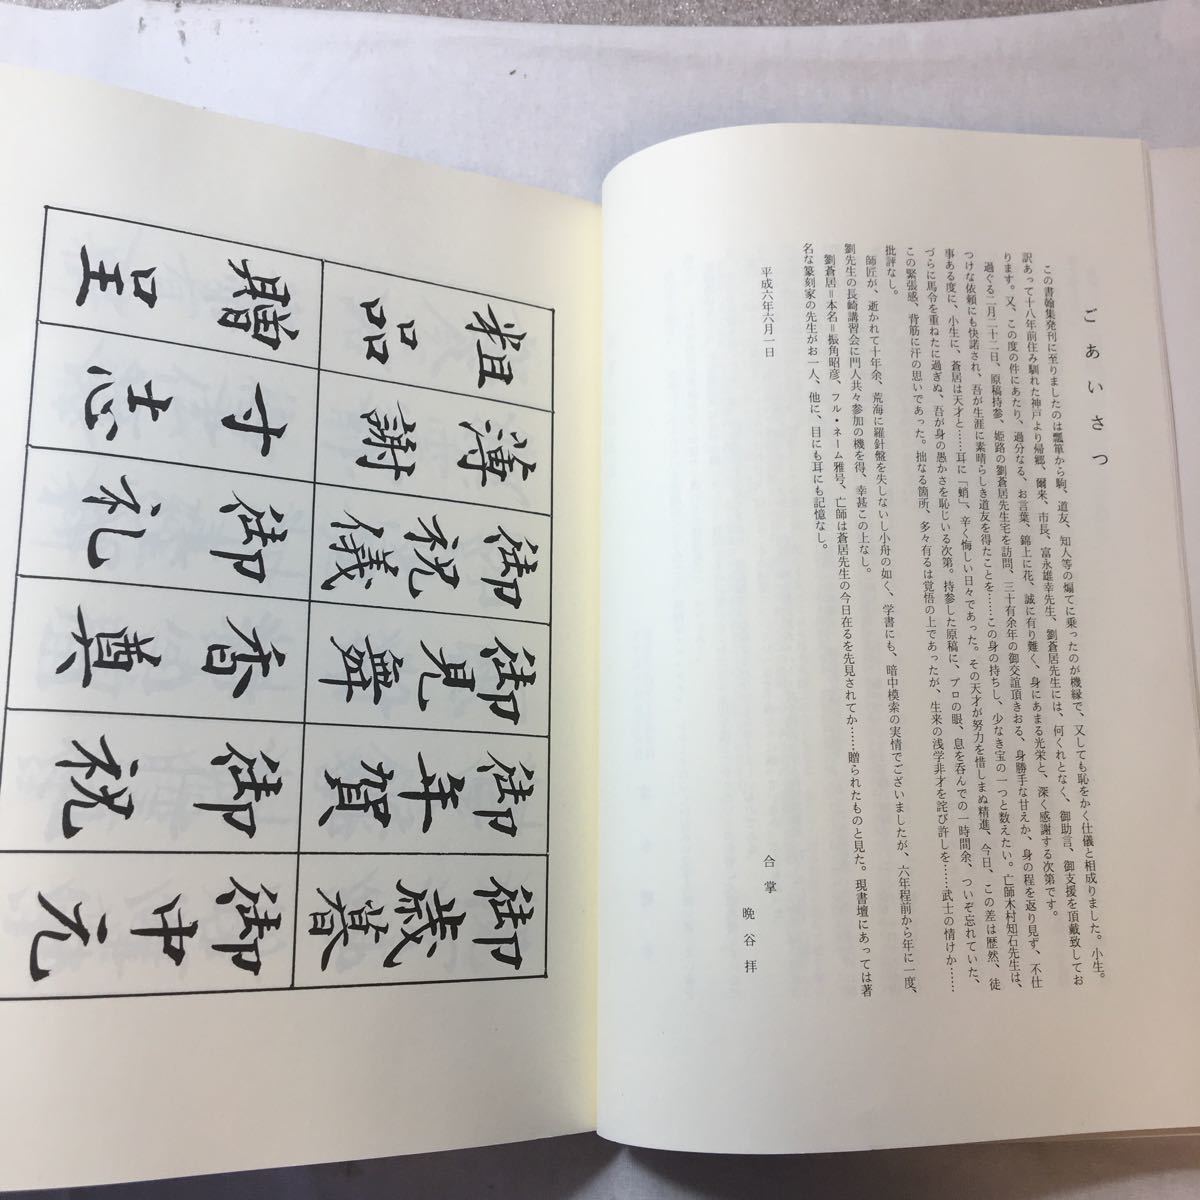 ごあいさつ
この書翰集発刊に至りましたのは瓢箪から駒、道友、知人等の煽てに乗ったのが機縁で、又しても恥をかく仕儀と相成りました。小生。
訳あって十八年前住み馴れた神戸より帰郷、爾来、市長、富永雄幸先生、劉蒼居先生には、何くれとなく、御助言、御支援を頂戴致してお
ります。又、この度の件にあたり、過分なる、お言葉、錦上に花、誠に有り難く、身にあまる光栄と、深く感謝する次第です。
過ぐる二月二十二日、原稿持参、姫路の劉蒼居先生宅を訪問、三十有余年の御交誼頂きおる、身勝手な甘えか、身の程を返り見ず、不仕
つけな依頼にも快諾され、吾が生涯に素晴らしき道友を得たことを……この身の持ちし、少なき宝の一つと数えたい。亡師木村知石先生は、
事ある度に、小生に、蒼居は天才と……耳に「蛸」、辛く悔しい日々であった。その天才が努力を惜しまぬ精進、今日、この差は歴然、徒
づらに馬令を重ねたに過ぎぬ、吾が身の愚かさを恥じいる次第。持参した原稿に、プロの眼、息を呑んでの一時間余、ついぞ忘れていた、
この緊張感、背筋に汗の思いであった。拙なる箇所、多々有るは覚悟の上であったが、生来の浅学非才を詫び許しを……武士の情けか……
批評なし。
師匠が、逝かれて十年余、荒海に羅針盤を失しないし小舟の如く、学書にも、暗中模索の実情でございましたが、六年程前から年に一度、
劉先生の長崎講習会に門人共々参加の機を得、幸甚この上なし。
劉蒼居＝本名＝振角昭彦、フル・ネーム雅号、亡師は蒼居先生の今日在るを先見されてか……贈られたものと見た。現書壇にあっては著
名な篆刻家の先生がお一人、他に、目にも耳にも記憶なし。
平成六年六月一日
合掌
晩谷拝
粗品
薄謝
御祝儀
御見舞
御年賀
御歳暮
贈呈
寸志
御礼
香奠
御祝
御中元